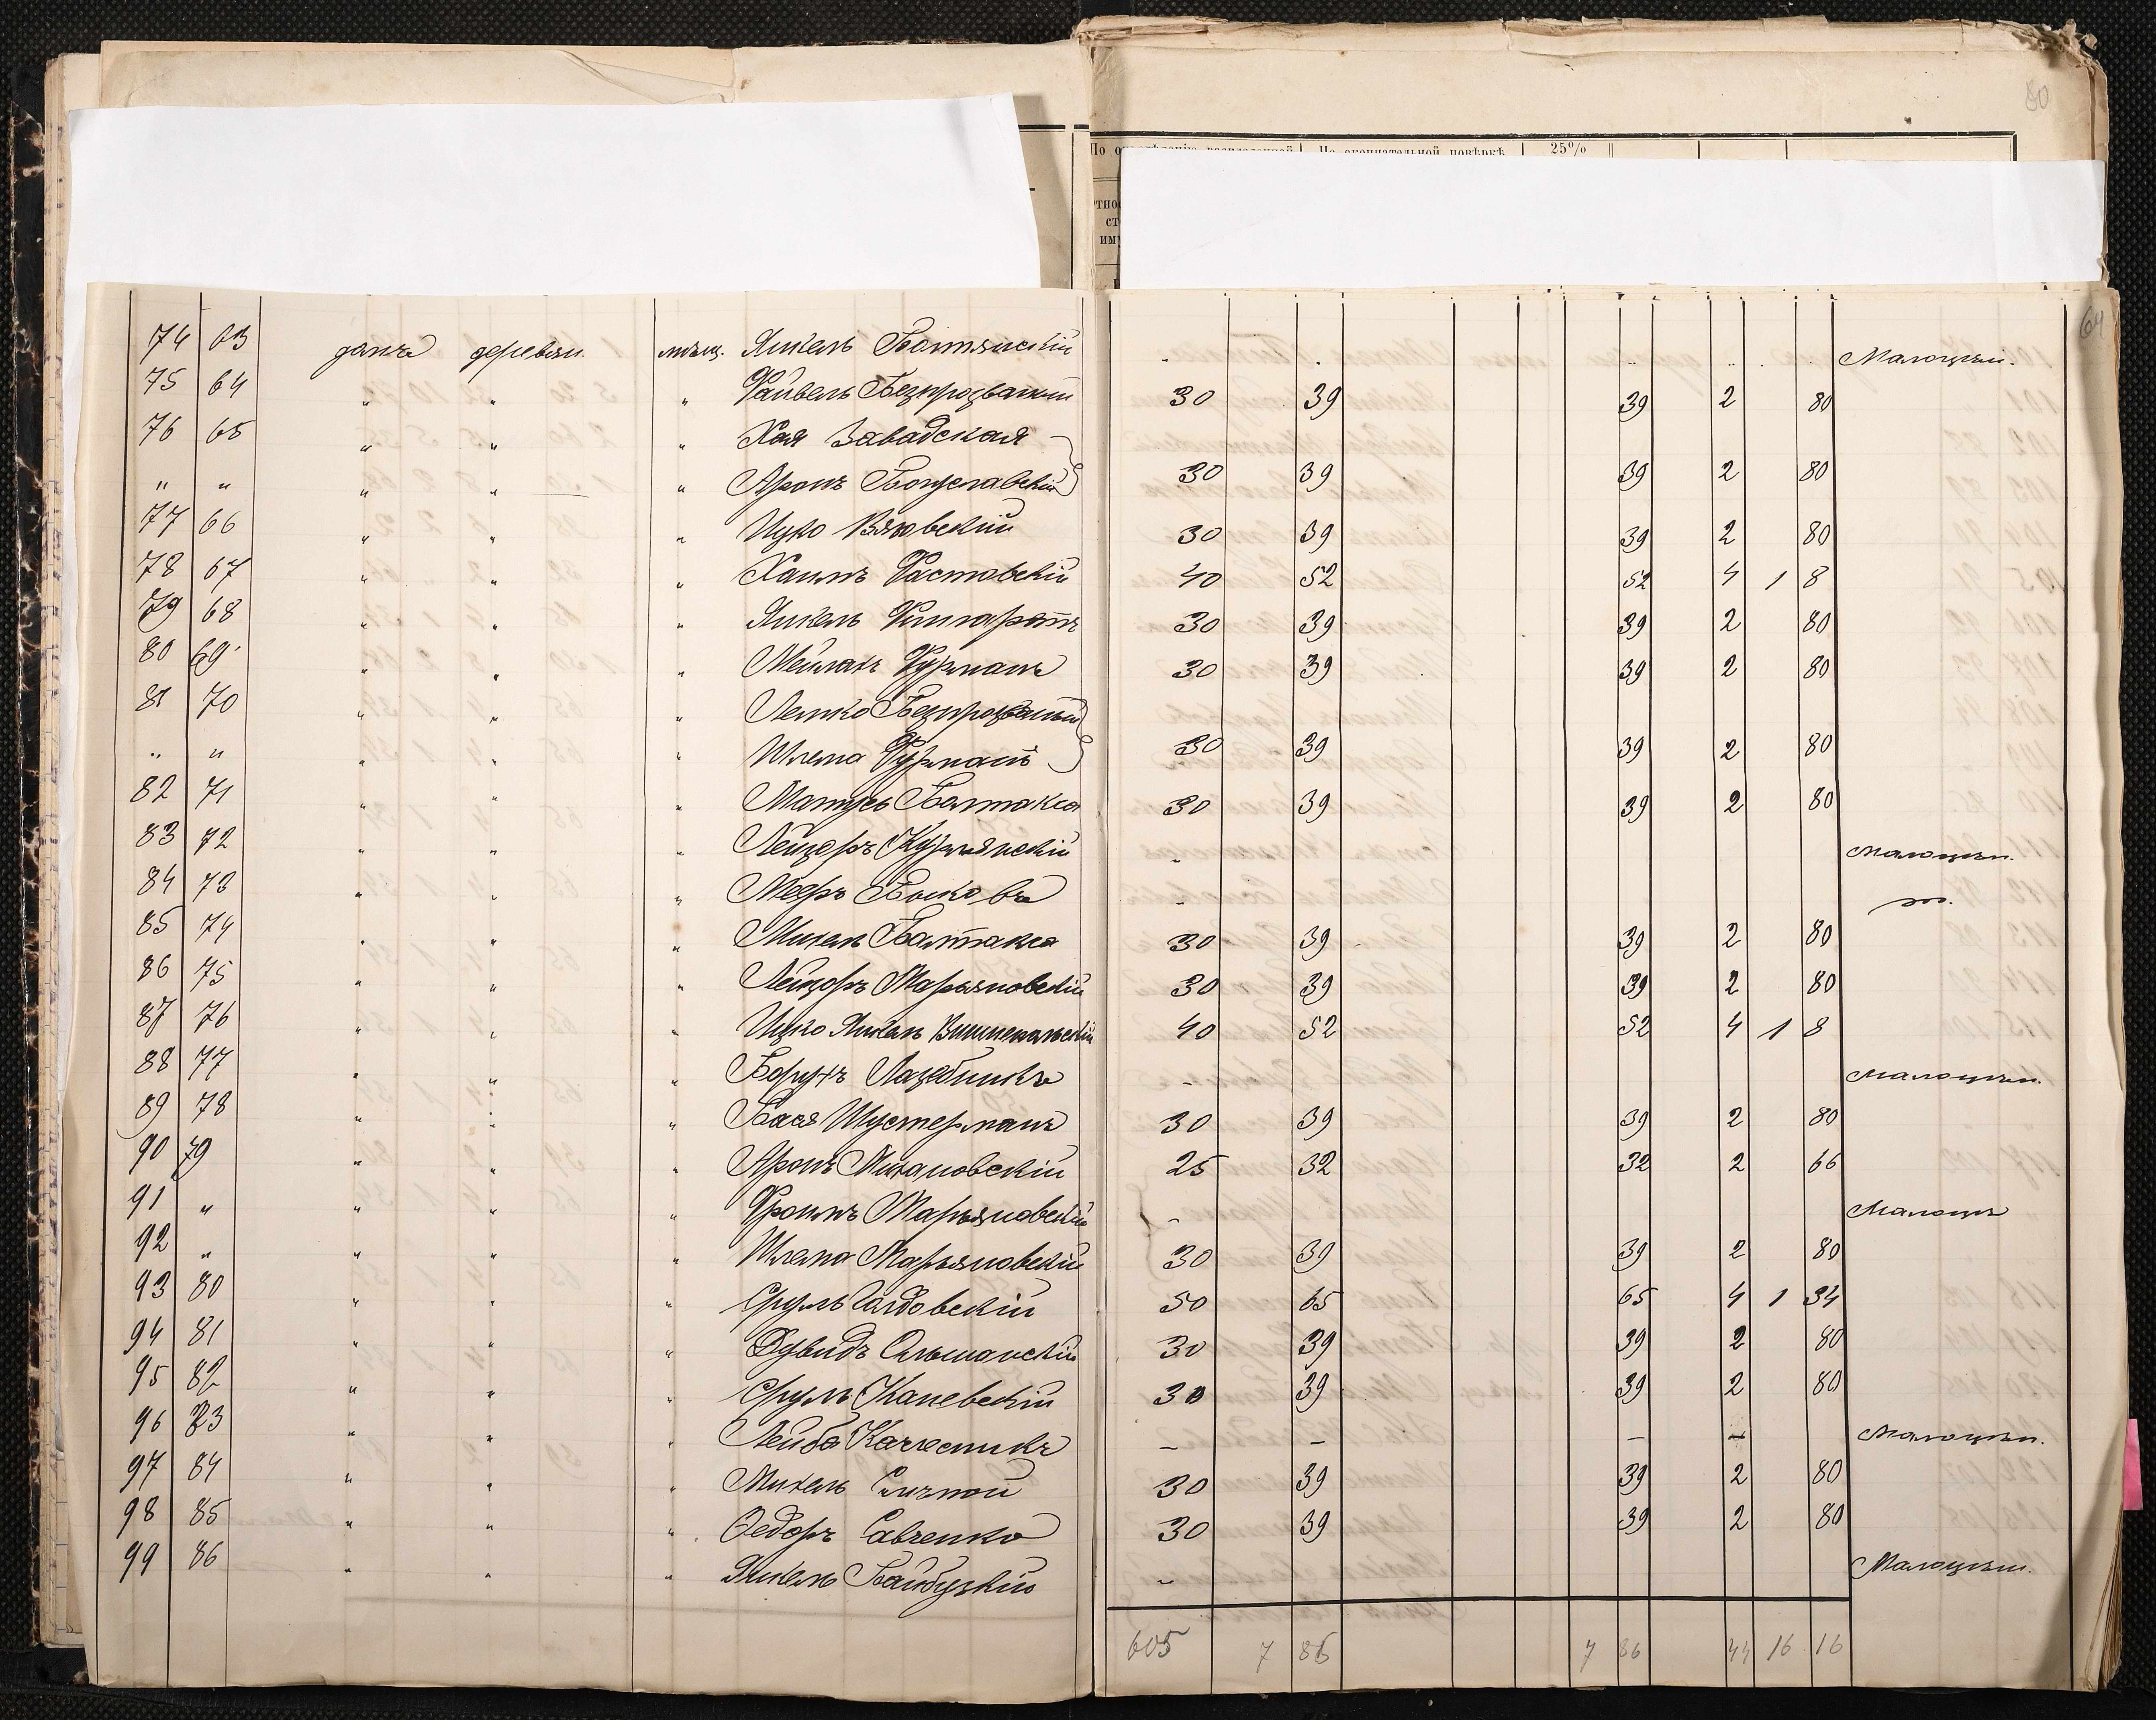 80
25%
64
74 63 домъ деревян. мѣщ. Янкель Болтянскій - Малоцѣн.
75 64 " " " Файвель Безпрозванный 30 39 39 2 80
76 65 " " " Хая Завадская
" " " " " Аронъ Богуславскій 30 39 39 2 80
77 66 " " " Ицко Вяховскій 30 39 39 2 80
78 67 " " " Хаимъ Фастовскій 40 52 52 4 1 8
79 68 " " " Янкель 30 39 39 2 80
80 69 " " " Мейлахъ Фурманъ 30 39 39 2 80
81 70 " " " Лейко Безпрозваный
" " " " " Шлема Фурманъ 30 39 39 2 80
82 71 " " " Матусь Балтакса 30 39 39 2 80
83 72 " " " Лейзеръ Курлянскій - Малоцѣн.
84 73 " " " Мееръ Быковъ -
85 74 " " " Михель Балтакса 30 39 39 2 80
86 75 " " " Лейзоръ Марьяновскій 30 39 39 2 80
87 76 " " " Ицко Янкель 40 52 52 4 1 8
88 77 " " " Борухъ Лазебникъ - Малоцѣн.
89 78 " " " Бася Шустерманъ 30 39 39 2 80
90 79 " " " Аронъ Михайловскій 25 32 32 2 66
91 " " " " Фроимъ Марьяновскій - Малоцѣ
92 " " " " Шлема Марьяновскій 30 39 39 2 80
93 80 " " " Сруль 50 65 65 4 1 34
94 81 " " " Дувидъ Ольшанскій 30 39 39 2 80
95 82 " " " Сруль Каневскій 30 39 39 2 80
96 83 " " " Лейба Колесникъ - - - - Малоцѣн.
97 84 " " " Михель 30 39 39 2 80
98 85 " " " Ѳедоръ Савченко 30 39 39 2 80
99 86 " " " Янкель Байбузкій - Малоцѣн.
605 7 86 7 86 44 16 16